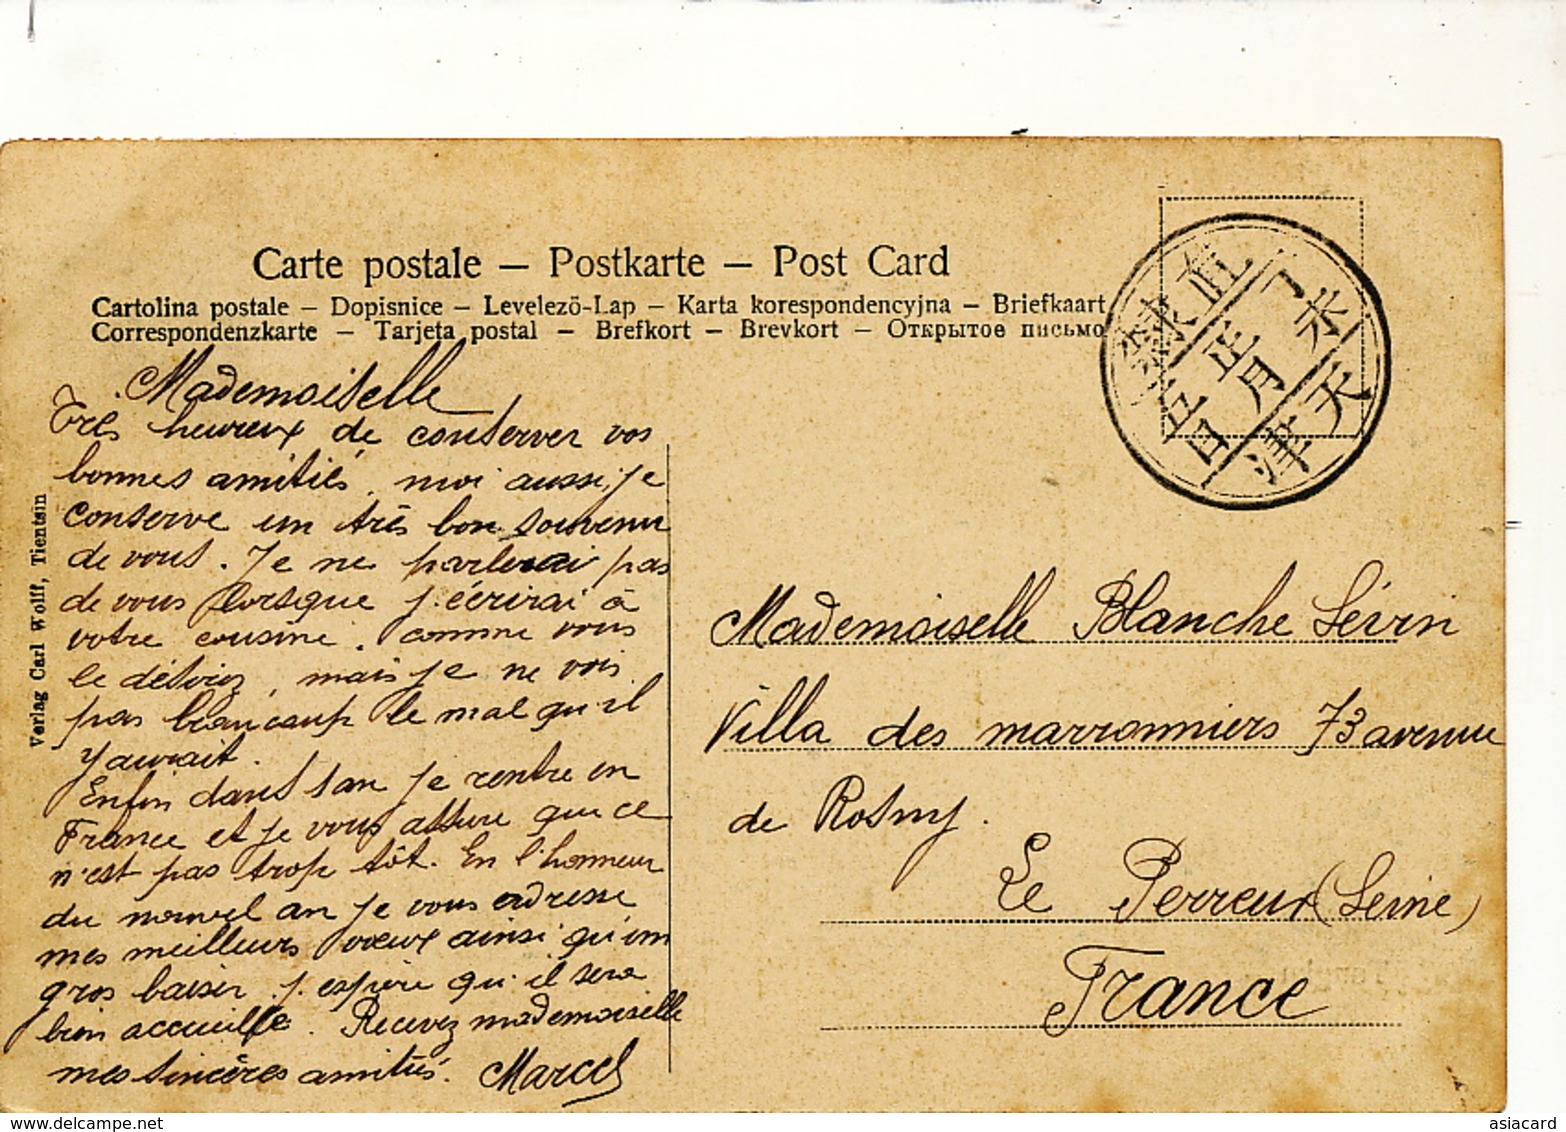 Carte postale – Postkarte – Post Card
Cartolina postale – Dopisnice – Levelezö-Lap – Karta korespondencyjna – Briefkaart
Correspondenzkarte – Tarjeta postal – Brefkort – Brevkort – Открытое письмо
Mademoiselle
Très heureux de conserver vos
bonnes amitiés, moi aussi, je
conserve un très bon souvenir
de vous. Je ne parlerai pas
de vous lorsque j'écrirai à
votre cousine, comme vous
le désirez, mais je ne vois
pas beaucoup le mal qu'il
y aurait.
Enfin dans 1 an je rentre en
France et je vous assure que ce
n'est pas trop tôt. En l'honneur
du nouvel an je vous adresse
mes meilleurs voeux ainsi qu'un
gros baiser j'espère qu'il sera
bien accueille. Recevez mademoiselle
mes sincères amitiés. Marcel
Verlag Carl Wolff, Tientsin
正月
五日
天津
Mademoiselle Blanche Sévin
Villa des marronniers 73 avenue
de Rosny.
Le Perreux (Seine)
France
asiacard